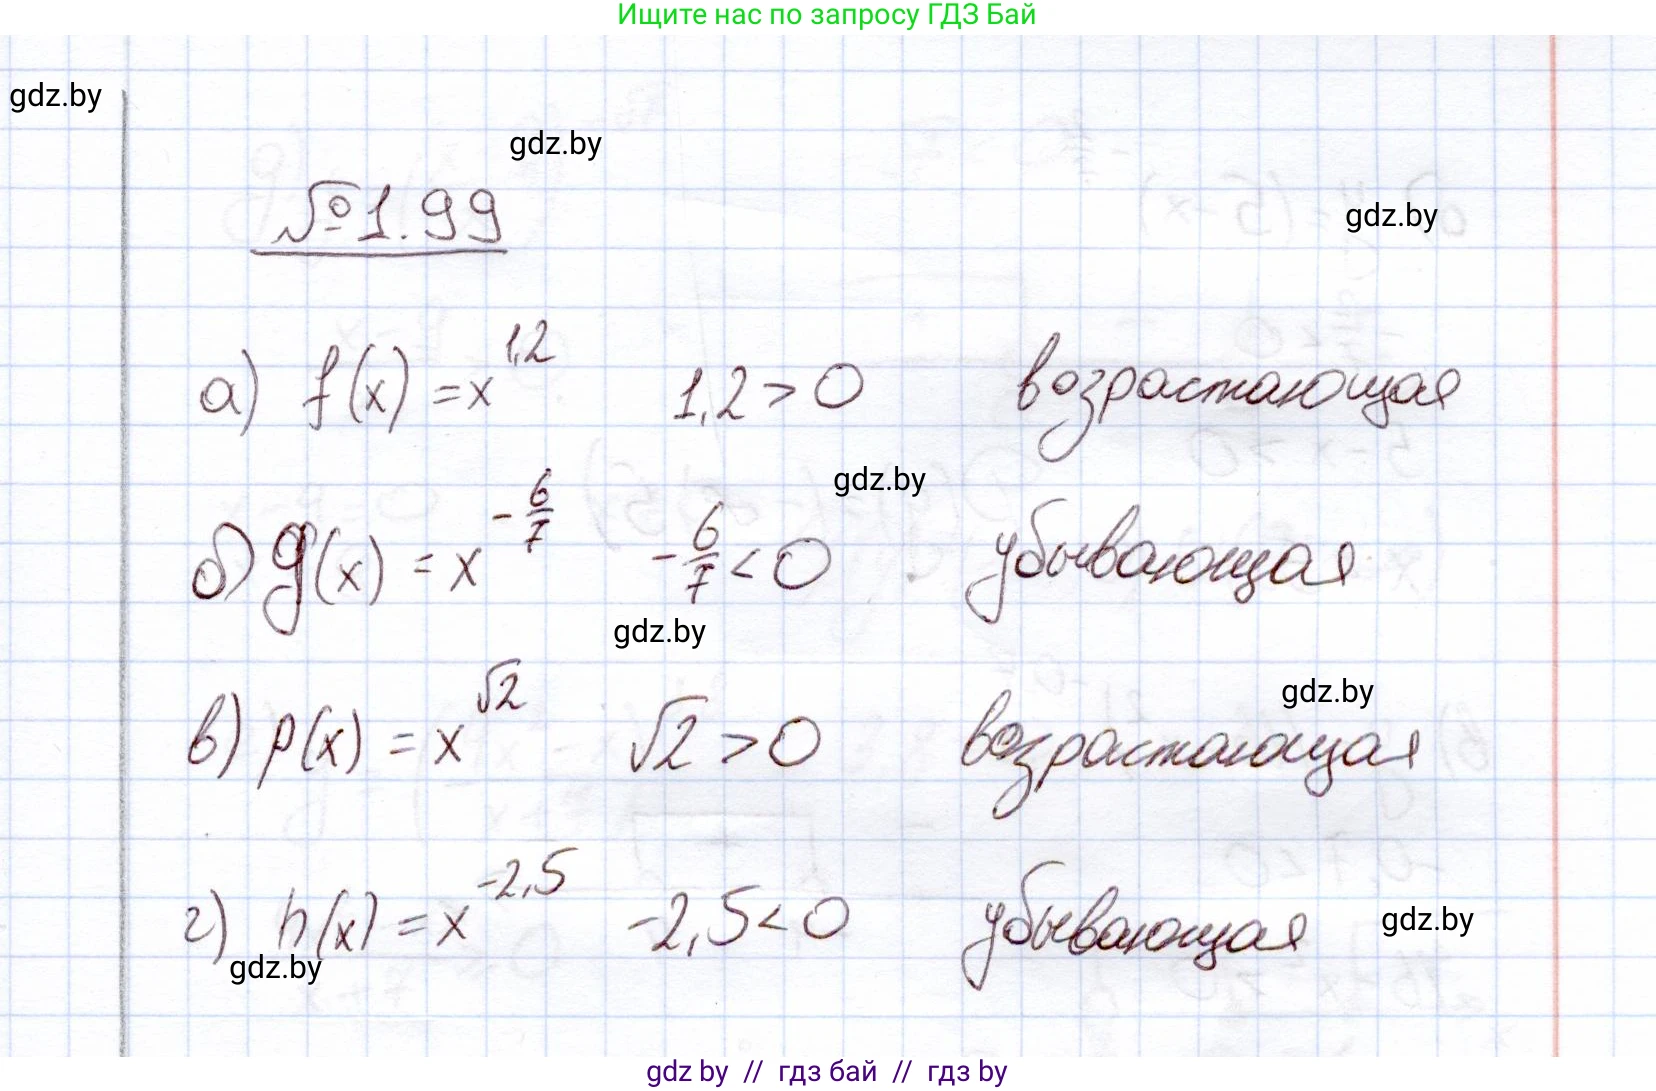 Ищите нас по запросу ГДЗ Бай
gdz.by
gdz.by
№1.99
gdz.by
а) f(x) = x^1,2 1,2 > 0 возрастающая
gdz.by
б) g(x) = x^-6/7 -6/7 < 0 убывающая
gdz.by
gdz.by
в) p(x) = x^√2 √2 > 0 возрастающая
г) h(x) = x^-2,5 -2,5 < 0 убывающая
gdz.by
gdz.by
gdz by // гдз бай // гдз by